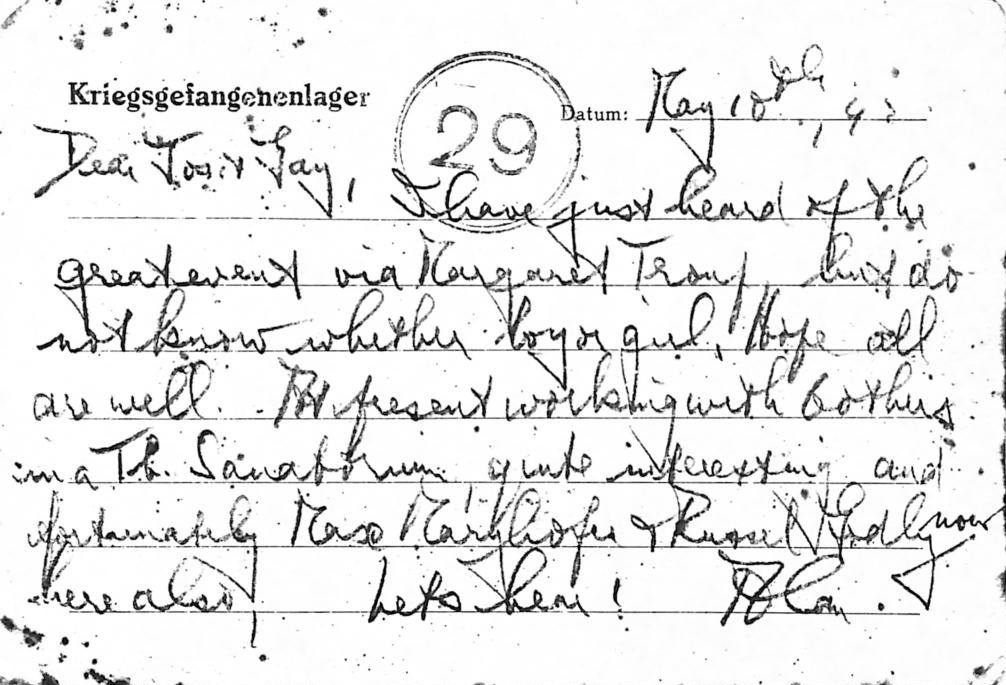 Kriegsgefangenenlager 29 Datum: May 10th, 42
Dear Tos & Gay, I have just heard of the
great event via Margaret Troup, but do
not know whether boy or girl. Hope all
are well. At present working with 6 others
in a Tb. Sanatorium, quite interesting and
fortunately Max Mayrhofer & Russel now
here also. Let's hear! Alan.